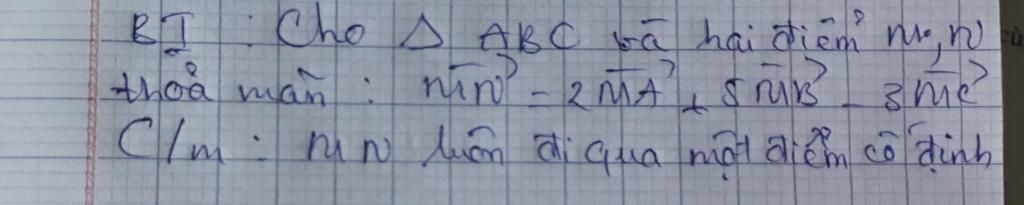 BI : Cho Δ ABC và hai điểm M, N
thoả mãn : MN⃗ - 2 MA⃗ + 5 MB⃗ - 3 MC⃗
C/m : MN luôn đi qua một điểm cố định